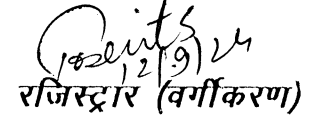 12/9/24
रजिस्ट्रार (वर्गीकरण)